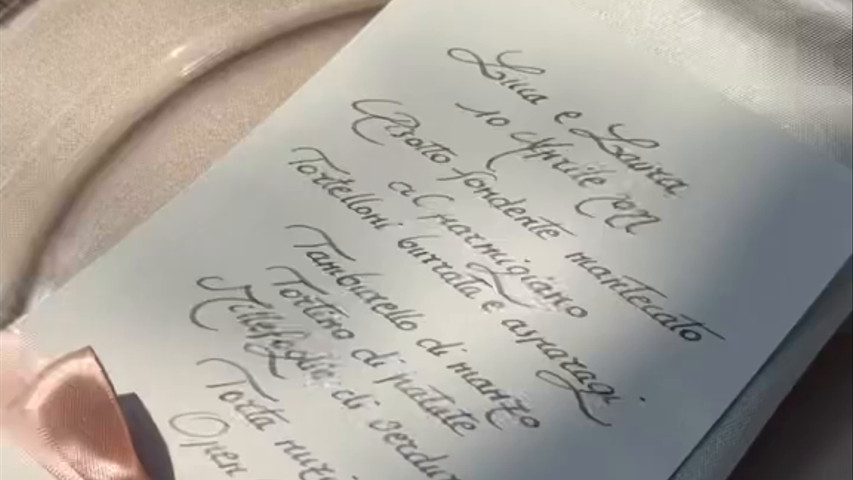 Luca e Laura
10 Aprile 2022
Risotto fondente mantecato
al parmigiano
Tortelloni burrata e asparagi
Tamburello di manzo
Tortino di patate
Millefoglie di verdure
Torta nuziale
Open